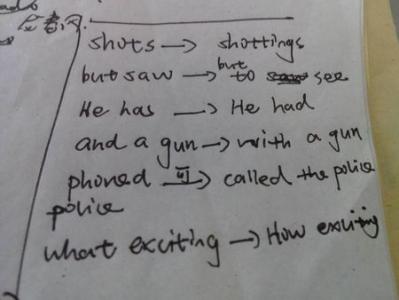 shots → shottings
but saw → but to see
He has → He had
and a gun → with a gun
phoned 可→ called the police
police
what exciting → How exciting